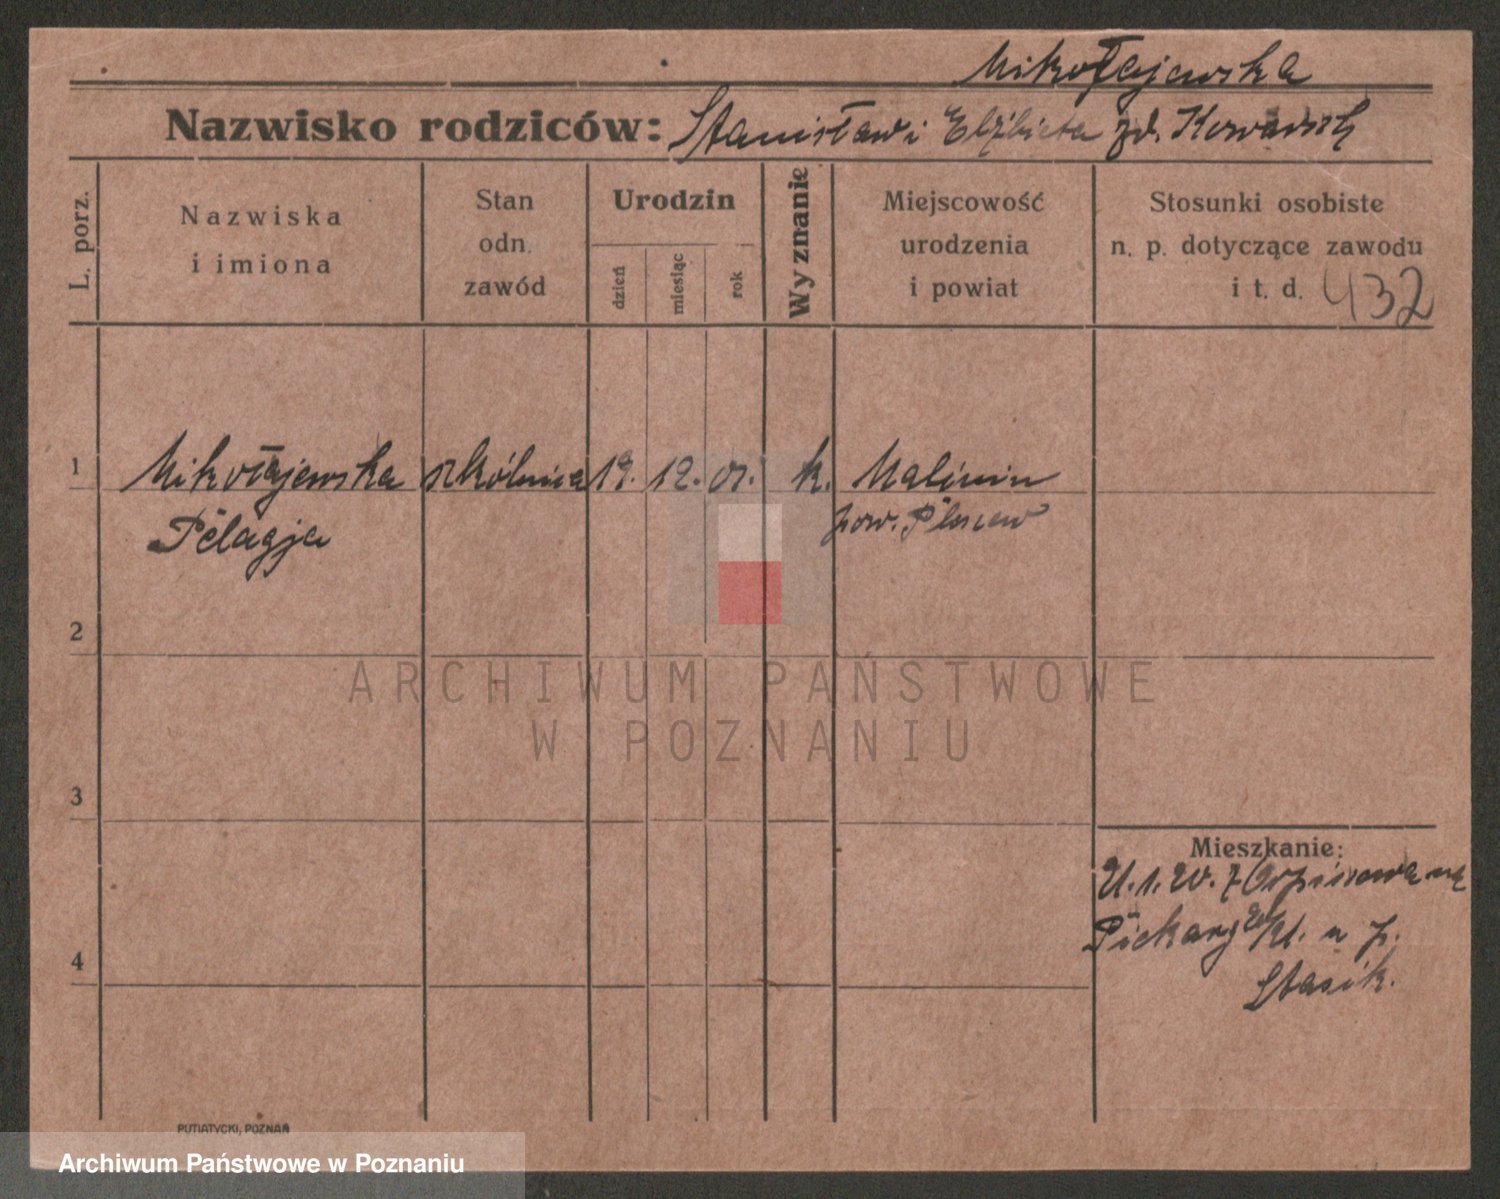 Mikołajewska
Nazwisko rodziców: Stanisław i Elżbieta zd.
L. porz.
Nazwiska
i imiona
Stan
odn.
zawód
Urodzin
dzień
miesiąc
rok
Wyznanie
Miejscowość
urodzenia
i powiat
Stosunki osobiste
n. p. dotyczące zawodu
i t. d. 432
1 Mikołajewska szkólnica 19. 12. 01. k. Malinin
Pelagja pow. Pleszew
2
3
4
Mieszkanie:
21.1.20. z
Piekary
Stasik.
PUTIATYCKI, POZNAŃ
ARCHIWUM PAŃSTWOWE
W POZNANIU
Archiwum Państwowe w Poznaniu